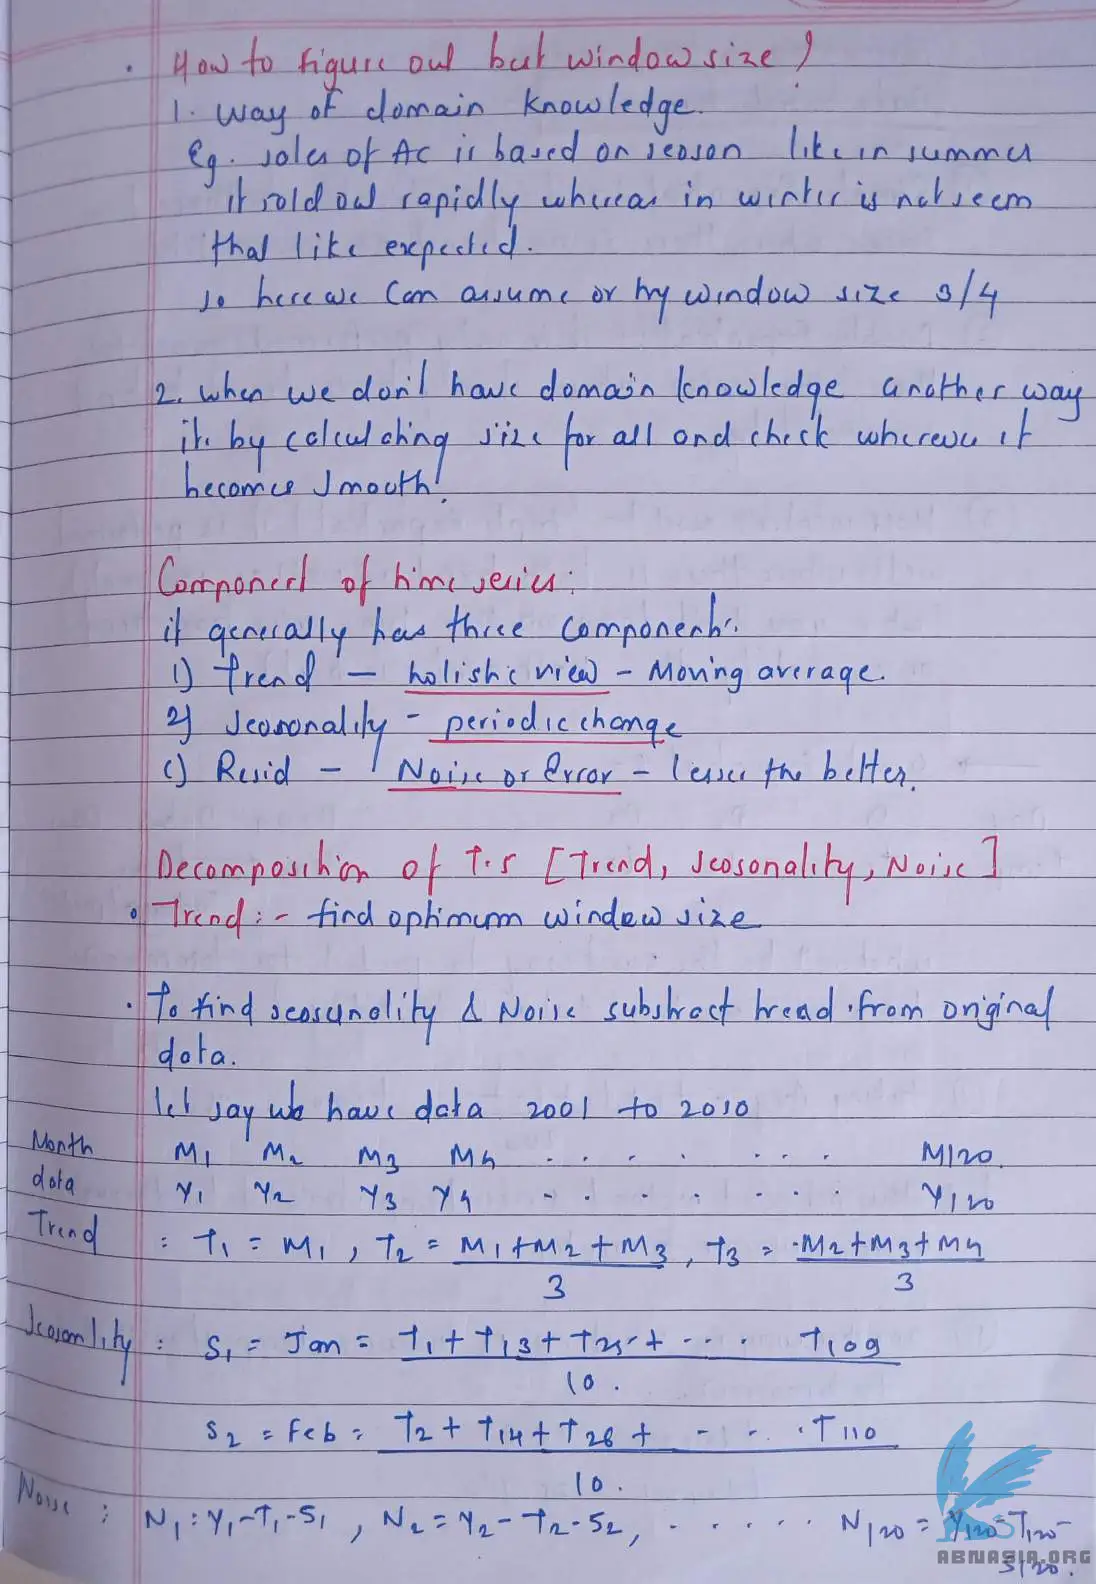 . How to figure out best window size ?
1. Way of domain knowledge.
Eg. sales of AC is based on season like in summer
it sold out rapidly whereas in winter is not seem
that like expected.
so here we can assume or try window size 3/4
2. when we don't have domain knowledge another way
is by calculating size for all and check whereve it
becomes smooth!
Component of time series:
it generally has three components.
1) Trend – holistic view – Moving average.
2) Seasonality – periodic change
c) Resid – Noise or Error – lesser the better.
Decomposition of T.S [Trend, Seasonality, Noise]
• Trend :- find optimum window size
. To find seasunality & Noise substract trend from original
data.
let say we have data 2001 to 2010
Month M1 M2 M3 M4 . . . . . . . M120.
data Y1 Y2 Y3 Y4 . . . . . . . Y120
Trend : T1 = M1 , T2 = (M1+M2+M3)/3 , T3 = (M2+M3+M4)/3
Seasonality : S1 = Jan = (T1 + T13 + T25 + . . . T109)/10.
S2 = Feb = (T2 + T14 + T26 + . . . T110)/10.
Noise : N1 = Y1-T1-S1 , N2 = Y2-T2-S2, . . . . . N120 = Y120-T120-
S120.
ABNASIA.ORG